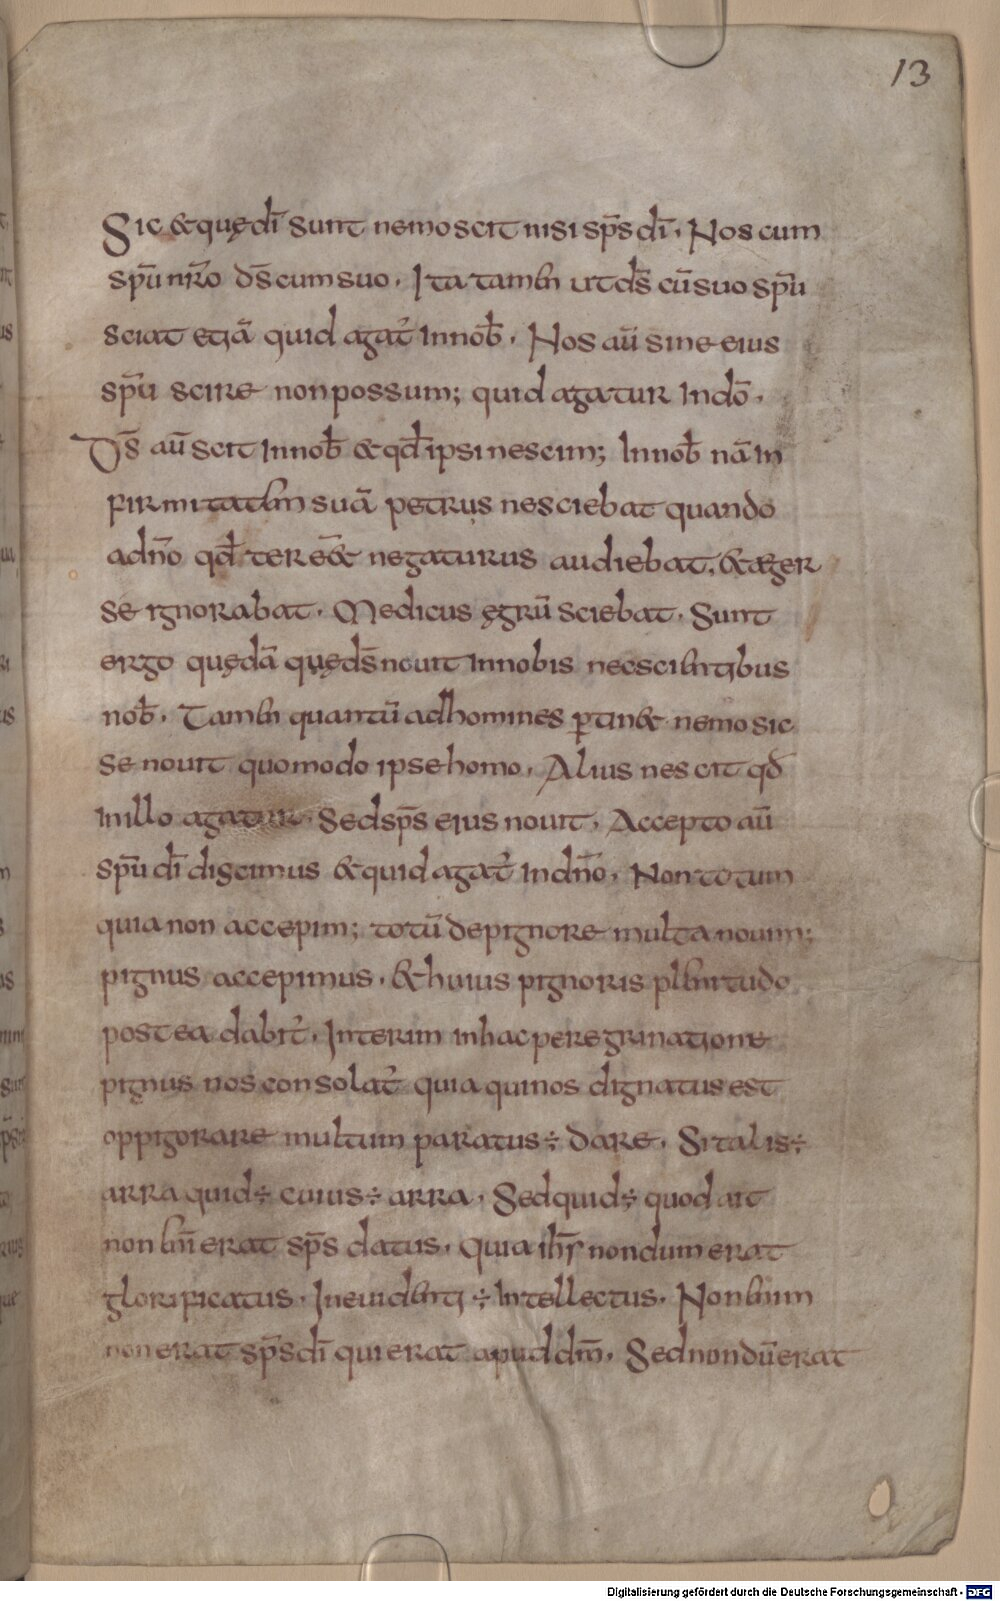 13
Sic & quę dī sunt nemo scit nisi sp̄s dī. Nos cum
spū nr̄o ds̄ cum suo. Ita tamen ut ds̄ cū suo spū
sciat etiā quid agat᷑ in nob̄. Nos aū sine eius
spū scire non possum; quid agatur in dō.
Ds̄ aū scit in nob̄ & qd̄ ipsi nescim; In nob̄ nā in
firmitatem suā petrus nesciebat quando
a dn̄o qd̄ ter eē& negaturus audiebat, & æger
se ignorabat. Medicus ęgrū sciebat. Sunt
ergo quędā quę ds̄ nouit in nobis nescientibus
nob̄. Tamen quantū ad homines ꝑtin& nemo sic
se nouit quomodo ipse homo. Alius nescit qd̄
in illo agatur. Sed sp̄s eius nouit. Accepto aū
spū dī discimus & quid agat᷑ in dn̄o. Non totum
quia non accepim; totū de pignore multa nouim;
pignus accepimus. & huius pignoris plenitudo
postea dabit᷑. Interim in hac peregrinatione
pignus nos consolat᷑ quia qui nos dignatus est
oppigorare multum paratus ÷ dare. Si talis ÷
arra quid ÷ cuius ÷ arra. Sed quid ÷ quod ait
non enī erat sp̄s datus. Quia ihs̄ nondum erat
glorificatus. In euidenti ÷ intellectus. Non enim
non erat sp̄s dī qui erat apud dm̄. Sed nondū erat
Digitalisierung gefördert durch die Deutsche Forschungsgemeinschaft - DFG